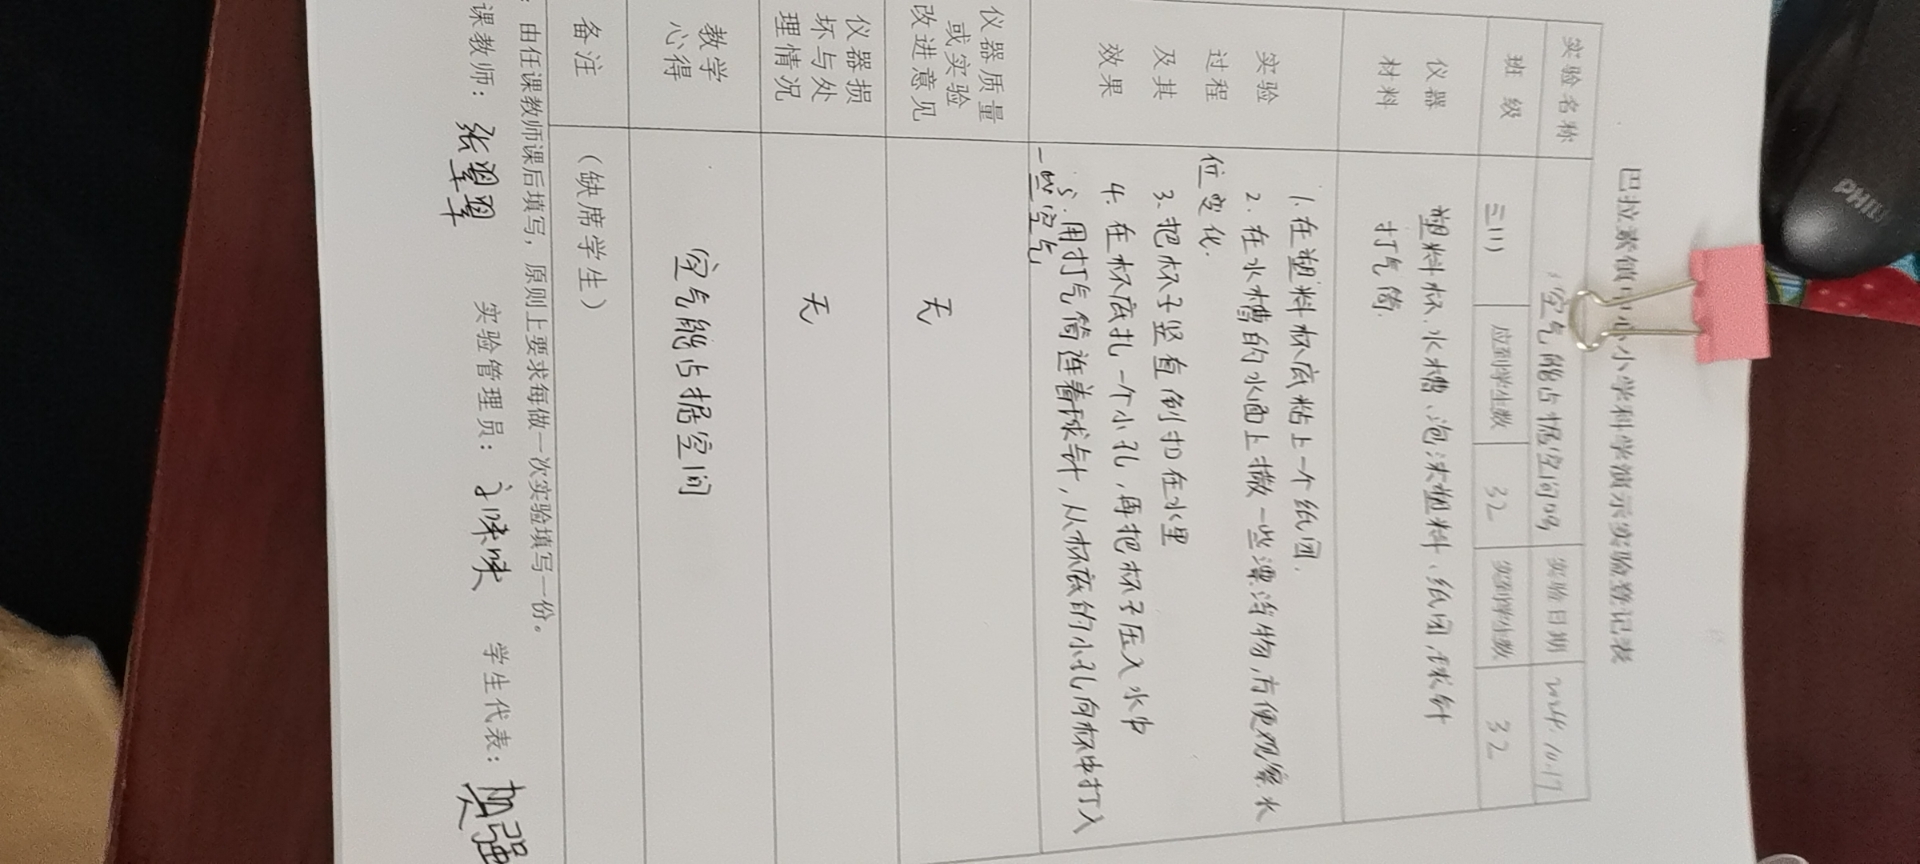 巴拉素镇 小学科学演示实验登记表
实验名称 空气能占据空间吗 实验日期 2024.10.17
班级 三(1) 应到学生数 32 实到学生数 32
仪器材料 塑料杯、水槽、泡沫塑料、纸团、球针
打气筒.
实验过程及其效果 1.在塑料杯底粘上一个纸团.
2.在水槽的水面上撒一些漂浮物,方便观察水
位变化.
3.把杯子竖直倒扣在水里
4.在杯底扎一个小孔,再把杯子压入水中
5.用打气筒连着球针,从杯底的小孔向杯中打入
一些空气
仪器质量或实验改进意见 无
仪器损坏与处理情况 无
教学心得 空气能占据空间
备注 (缺席学生)
:由任课教师课后填写,原则上要求每做一次实验填写一份。
课教师: 张翠翠 实验管理员: 学生代表:
PHILI